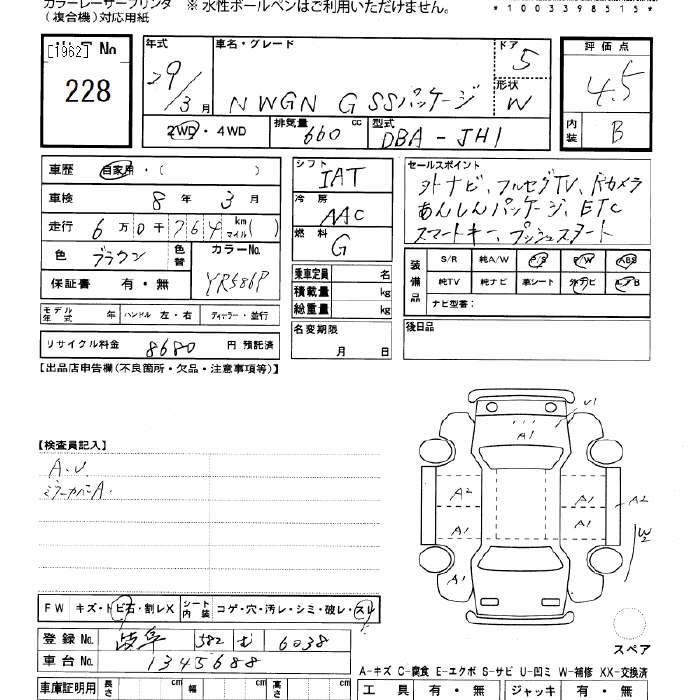 カラーレーザープリンタ ※ 水性ボールペンはご利用いただけません。
(複合機)対応用紙 *1003398515*
[1962] No 228
年式 29/3月 車名・グレード NWGN G SSパッケージ ドア 5 形状 W
2WD・4WD 排気量 660 cc 型式 DBA-JH1
評価点 4.5
内装 B
車歴 自家用・( )
車検 8年 3月
走行 6万0千764 km マイル( )
色 ブラウン 色替 カラーNo. YR586P
保証書 有・無
シフト IAT
冷房 AAC
燃料 G
乗車定員 名
積載量 kg
総重量 kg
セールスポイント
外ナビ、フルセグTV、Rカメラ
あんしんパッケージ、ETC
スマートキー、プッシュスタート
装備品 S/R 純A/W P/S P/W ABS
純TV 純ナビ 革シート 外ナビ エアB
ナビ型番:
モデル年式 年 ハンドル 左・右 ディーラー・並行
名変期限 月 日
後日品
リサイクル料金 8680 円 預託済
【出品店申告欄(不良箇所・欠品・注意事項等)】
【検査員記入】
A.U
ミラーカバーA.
U1
A1
A2 A1 A2
A1 A1 W2
A1
スペア
FW キズ・トビ石・割レX シート内装 コゲ・穴・汚レ・シミ・破レ・スレ
登録No. 岐阜 582 む 6038
車台No. 1345688
A-キズ C-腐食 E-エクボ S-サビ U-凹ミ W-補修 XX-交換済
車庫証明用 長さ cm 幅 cm 高さ cm
工具 有・無 ジャッキ 有・無